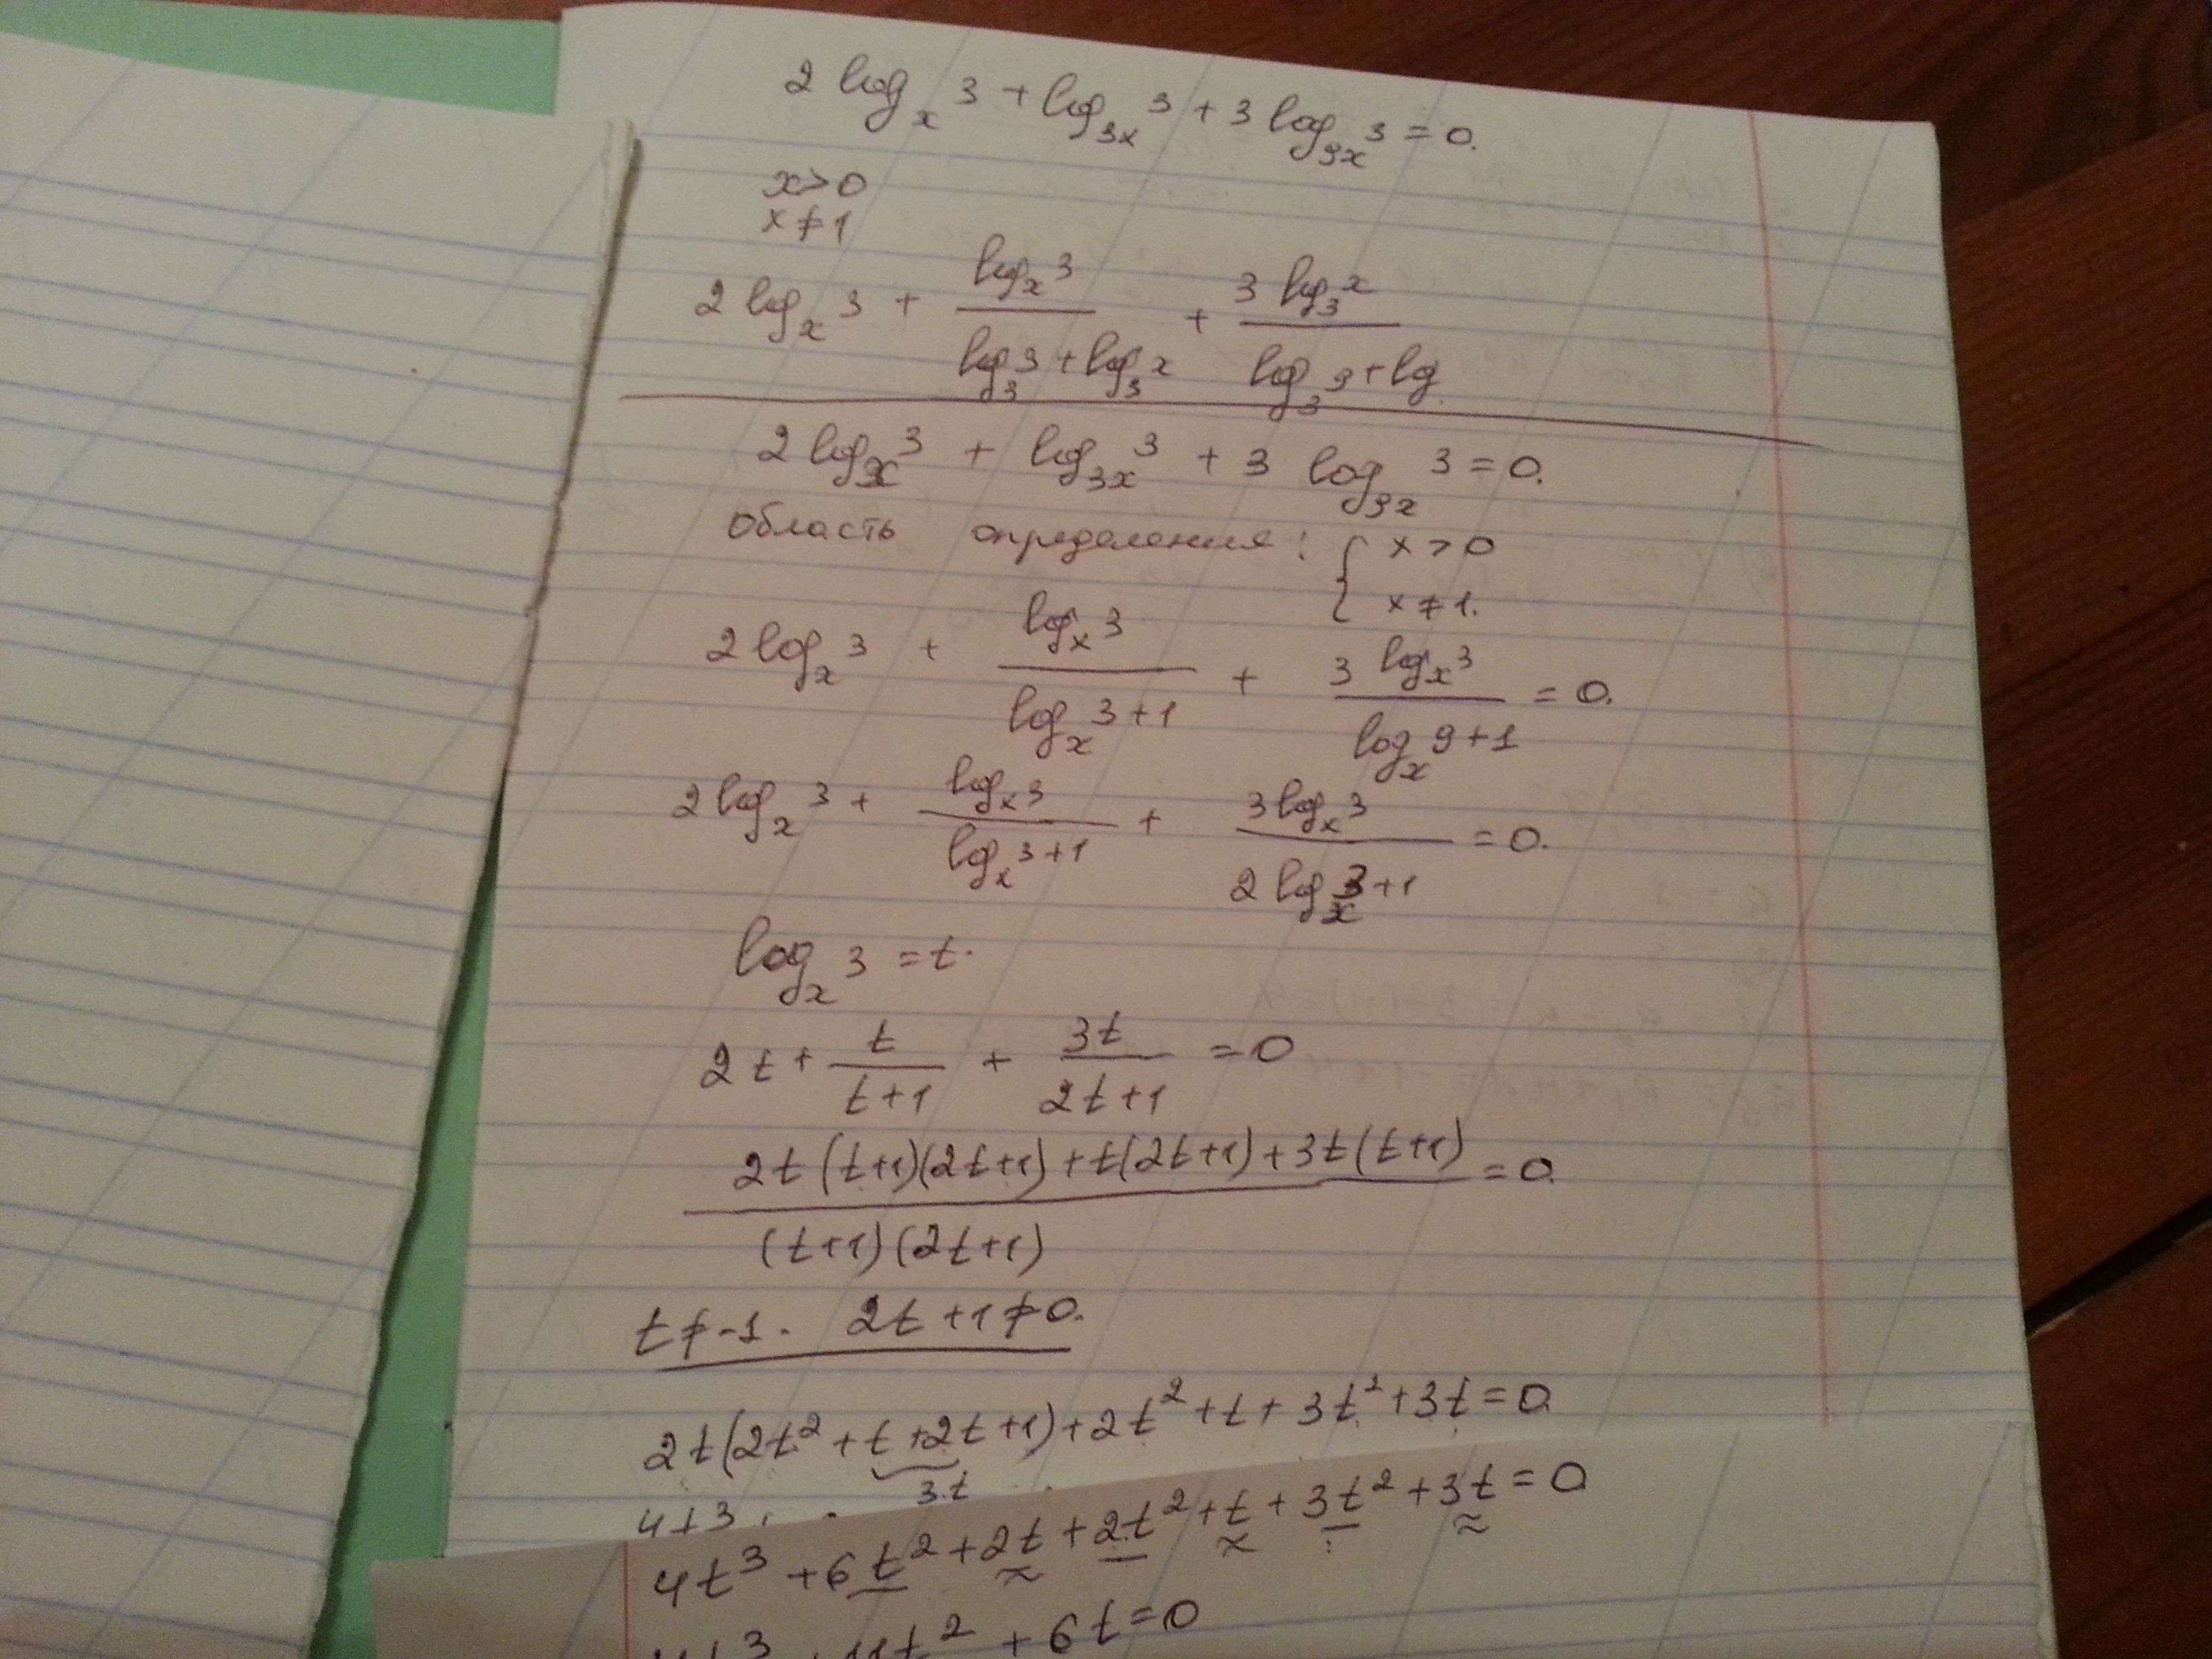 2 log_x 3 + log_{3x} 3 + 3 log_{9x} 3 = 0.
x > 0
x ≠ 1
2 log_x 3 + \frac{log_x 3}{log_3 3 + log_3 x} + \frac{3 log_3 x}{log_3 9 + log}
2 log_x 3 + log_{3x} 3 + 3 log_{9x} 3 = 0.
Область определения: { x > 0
x ≠ 1.
2 log_x 3 + \frac{log_x 3}{log_x 3 + 1} + \frac{3 log_x 3}{log_x 9 + 1} = 0.
2 log_x 3 + \frac{log_x 3}{log_x 3 + 1} + \frac{3 log_x 3}{2 log_x 3 + 1} = 0.
log_x 3 = t.
2t + \frac{t}{t+1} + \frac{3t}{2t+1} = 0
\frac{2t(t+1)(2t+1) + t(2t+1) + 3t(t+1)}{(t+1)(2t+1)} = 0.
t ≠ -1. 2t + 1 ≠ 0.
2t(2t² + t + 2t + 1) + 2t² + t + 3t² + 3t = 0
3t
4t³ + 6t² + 2t + 2t² + t + 3t² + 3t = 0
4t³ + 11t² + 6t = 0